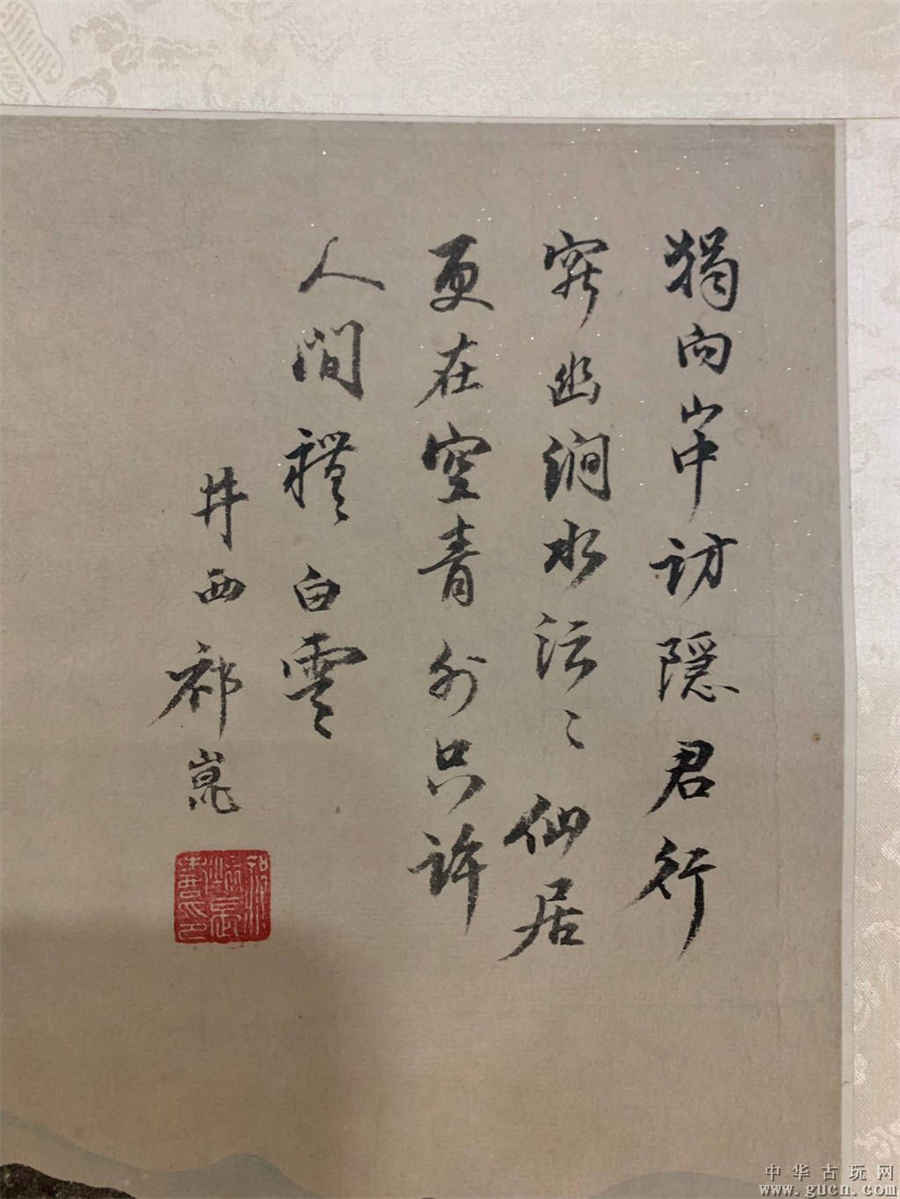 獨向山中訪隱君行
窮幽澗水沄〻仙居
更在空青外只許
人間禮白雲
井西祁崑
中华古玩网
www.gucn.com